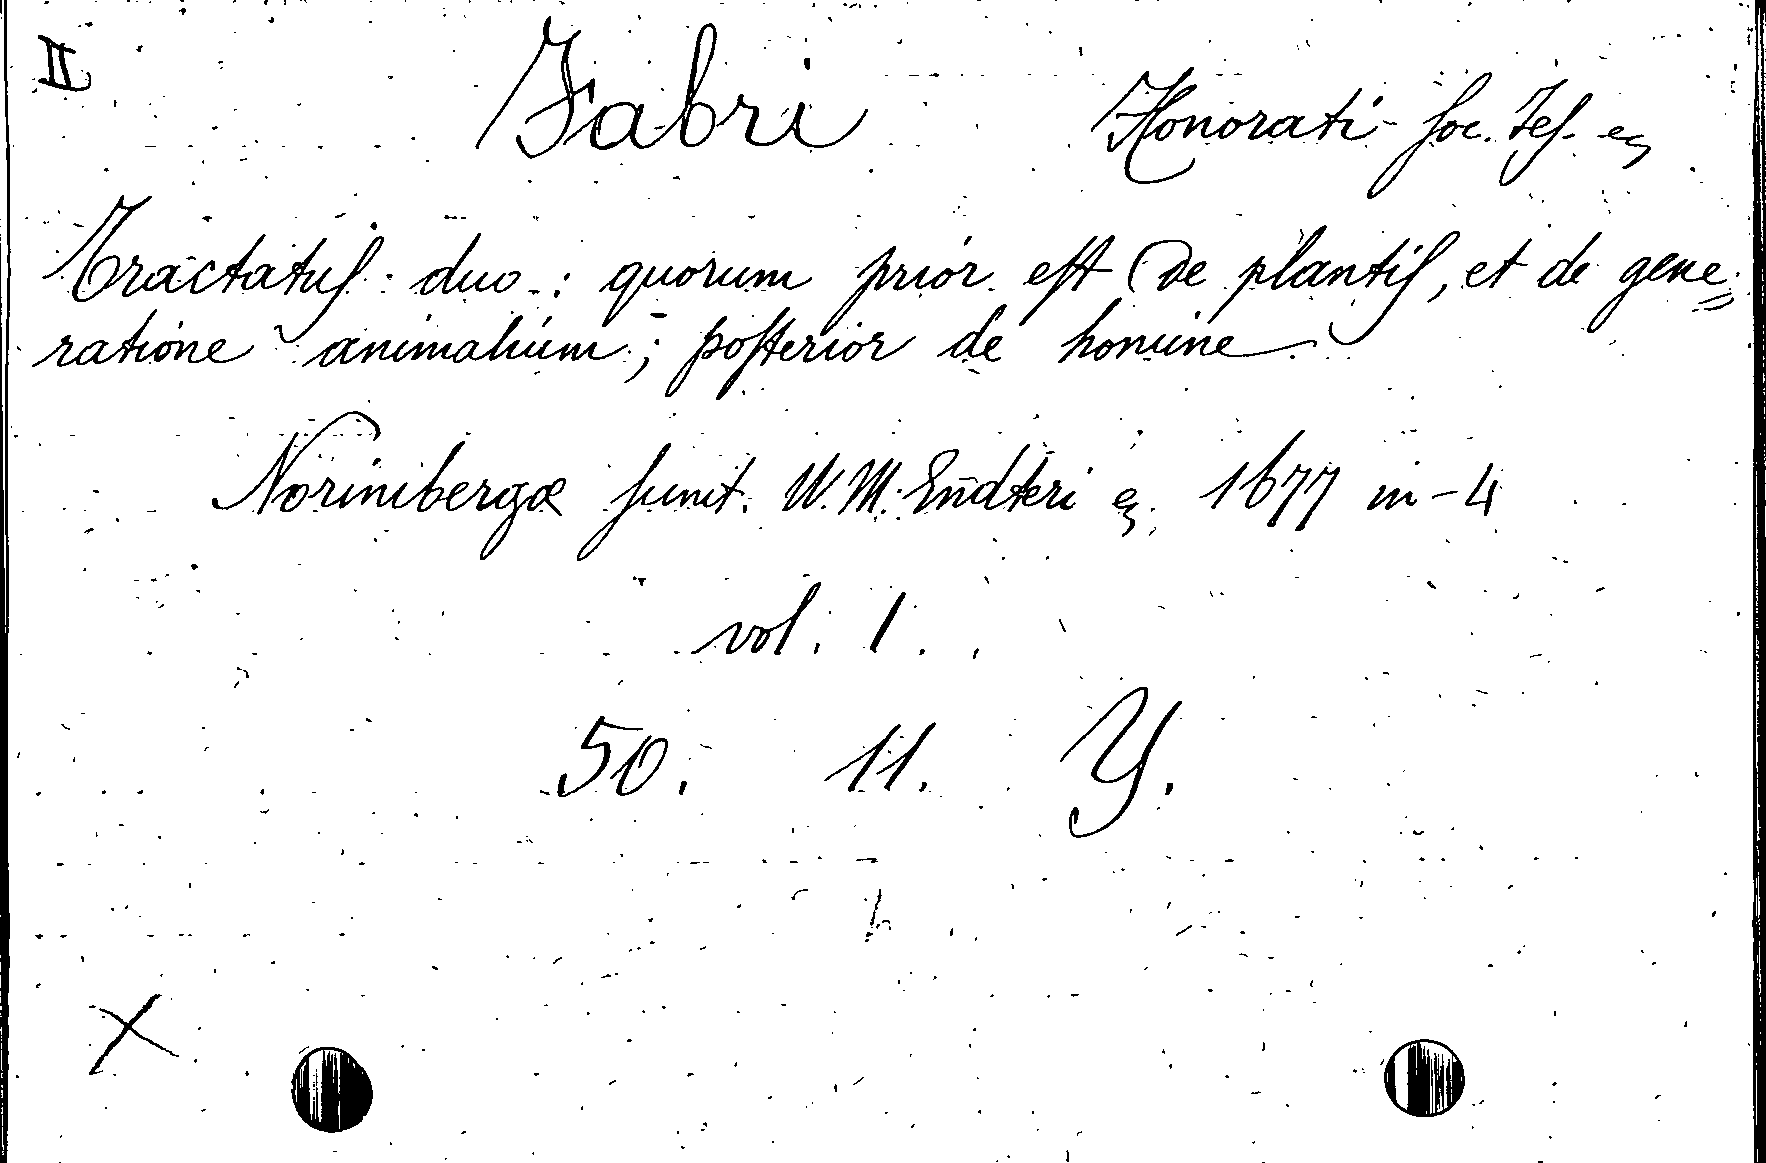 II
Fabri Honorati - Soc. Jes. &
Tractatus duo : quorum prior est de plantis, et de gene=
ratione animalium ; posterior de homine.
Norinibergæ sunit. W. M. Endteri &. 1677 in-4
vol. 1.
50. 11. Y.
X